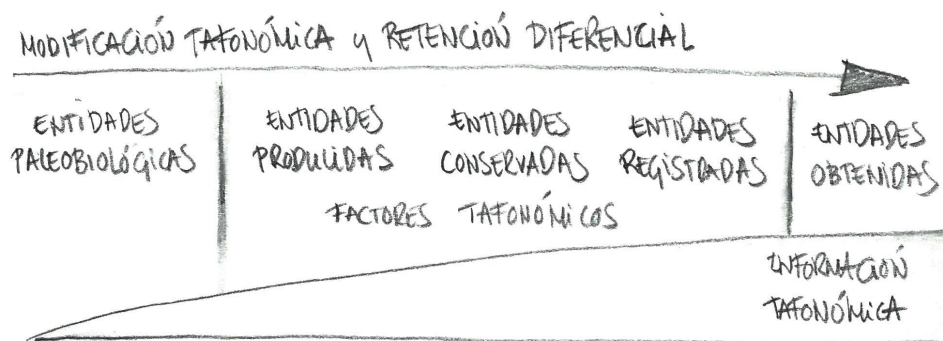 MODIFICACIÓN TAFONÓMICA y RETENCIÓN DIFERENCIAL
ENTIDADES PALEOBIOLÓGICAS
ENTIDADES PRODUCIDAS
ENTIDADES CONSERVADAS
ENTIDADES REGISTRADAS
ENTIDADES OBTENIDAS
FACTORES TAFONÓMICOS
INFORMACIÓN
TAFONÓMICA